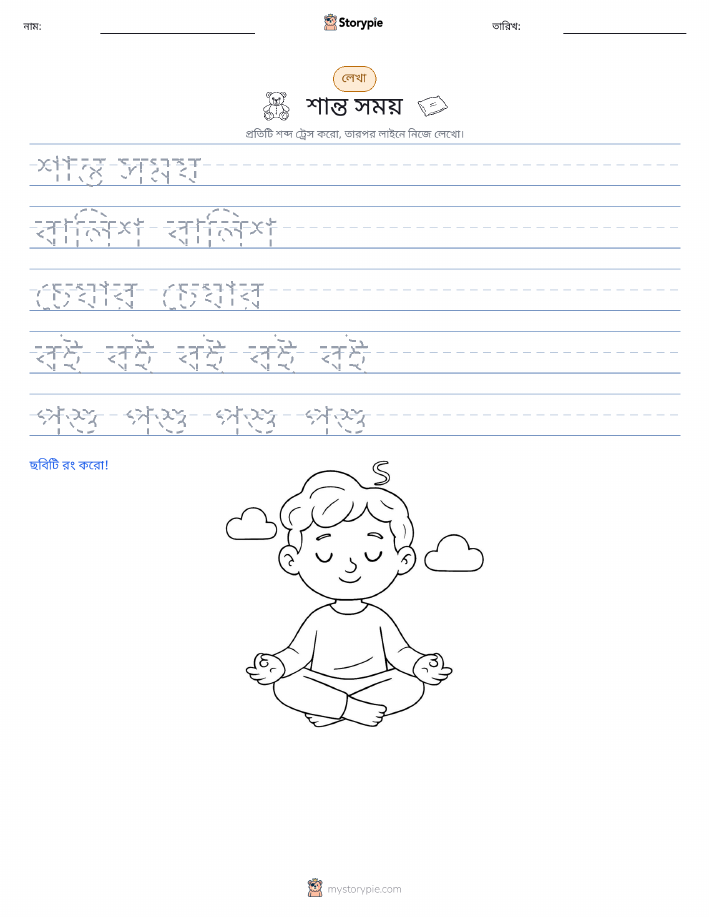 নাম:
Storypie
তারিখ:
লেখা
শান্ত সময়
প্রতিটি শব্দ ট্রেস করো, তারপর লাইনে নিজে লেখো।
শান্ত সময়
বালিশ বালিশ
চেয়ার চেয়ার
বই বই বই বই বই
পশু পশু পশু পশু
ছবিটি রং করো!
mystorypie.com